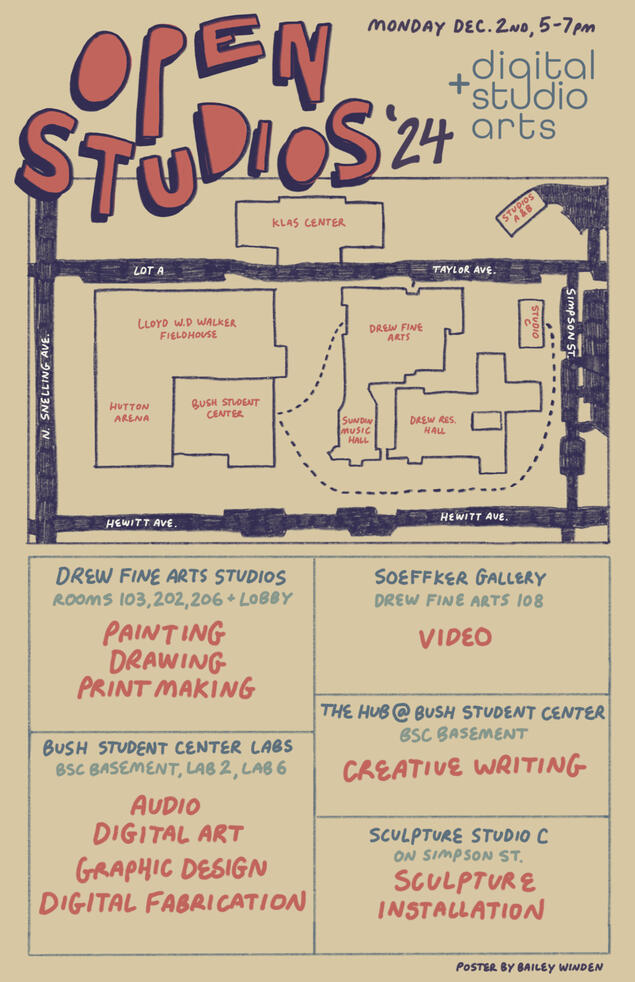 OPEN
STUDIOS '24
MONDAY DEC. 2ND, 5-7PM
+ digital
studio
arts
KLAS CENTER
STUDIOS
A & B
LOT A
TAYLOR AVE.
N. SNELLING AVE.
LLOYD W.D WALKER
FIELDHOUSE
DREW FINE
ARTS
STUDIO
C
SIMPSON ST.
HUTTON
ARENA
BUSH STUDENT
CENTER
SUNDIN
MUSIC
HALL
DREW RES.
HALL
HEWITT AVE.
HEWITT AVE.
DREW FINE ARTS STUDIOS
ROOMS 103, 202, 206 + LOBBY
PAINTING
DRAWING
PRINTMAKING
SOEFFKER GALLERY
DREW FINE ARTS 108
VIDEO
THE HUB @ BUSH STUDENT CENTER
BSC BASEMENT
CREATIVE WRITING
BUSH STUDENT CENTER LABS
BSC BASEMENT, LAB 2, LAB 6
AUDIO
DIGITAL ART
GRAPHIC DESIGN
DIGITAL FABRICATION
SCULPTURE STUDIO C
ON SIMPSON ST.
SCULPTURE
INSTALLATION
POSTER BY BAILEY WINDEN